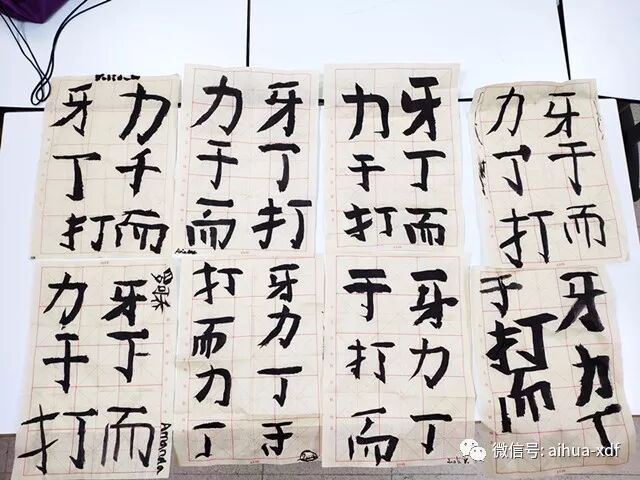 牙 力
丁 于
打 而
力 牙
于 丁
而 打
力 牙
于 丁
打 而
力 牙
丁 于
打 而
力 牙
于 丁
打 而
Amanda
打 牙
而 力
力 丁
丁 于
于 牙
打 力
而 丁
于 牙
打 力
而 丁
微信号: aihua-xdf